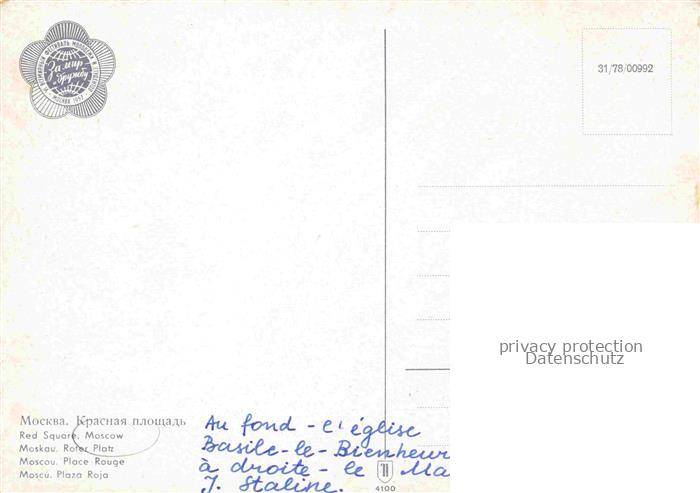 VI ВСЕМИРНЫЙ ФЕСТИВАЛЬ МОЛОДЕЖИ И СТУДЕНТОВ
За мир
и дружбу
МОСКВА 1957
31/78/00992
privacy protection
Datenschutz
Москва. Красная площадь
Red Square, Moscow
Moskau. Roter Platz
Moscou. Place Rouge
Moscú. Plaza Roja
Au fond - l'église
Basile-le-Bienheur
à droite - le Ma
J. Staline.
4100